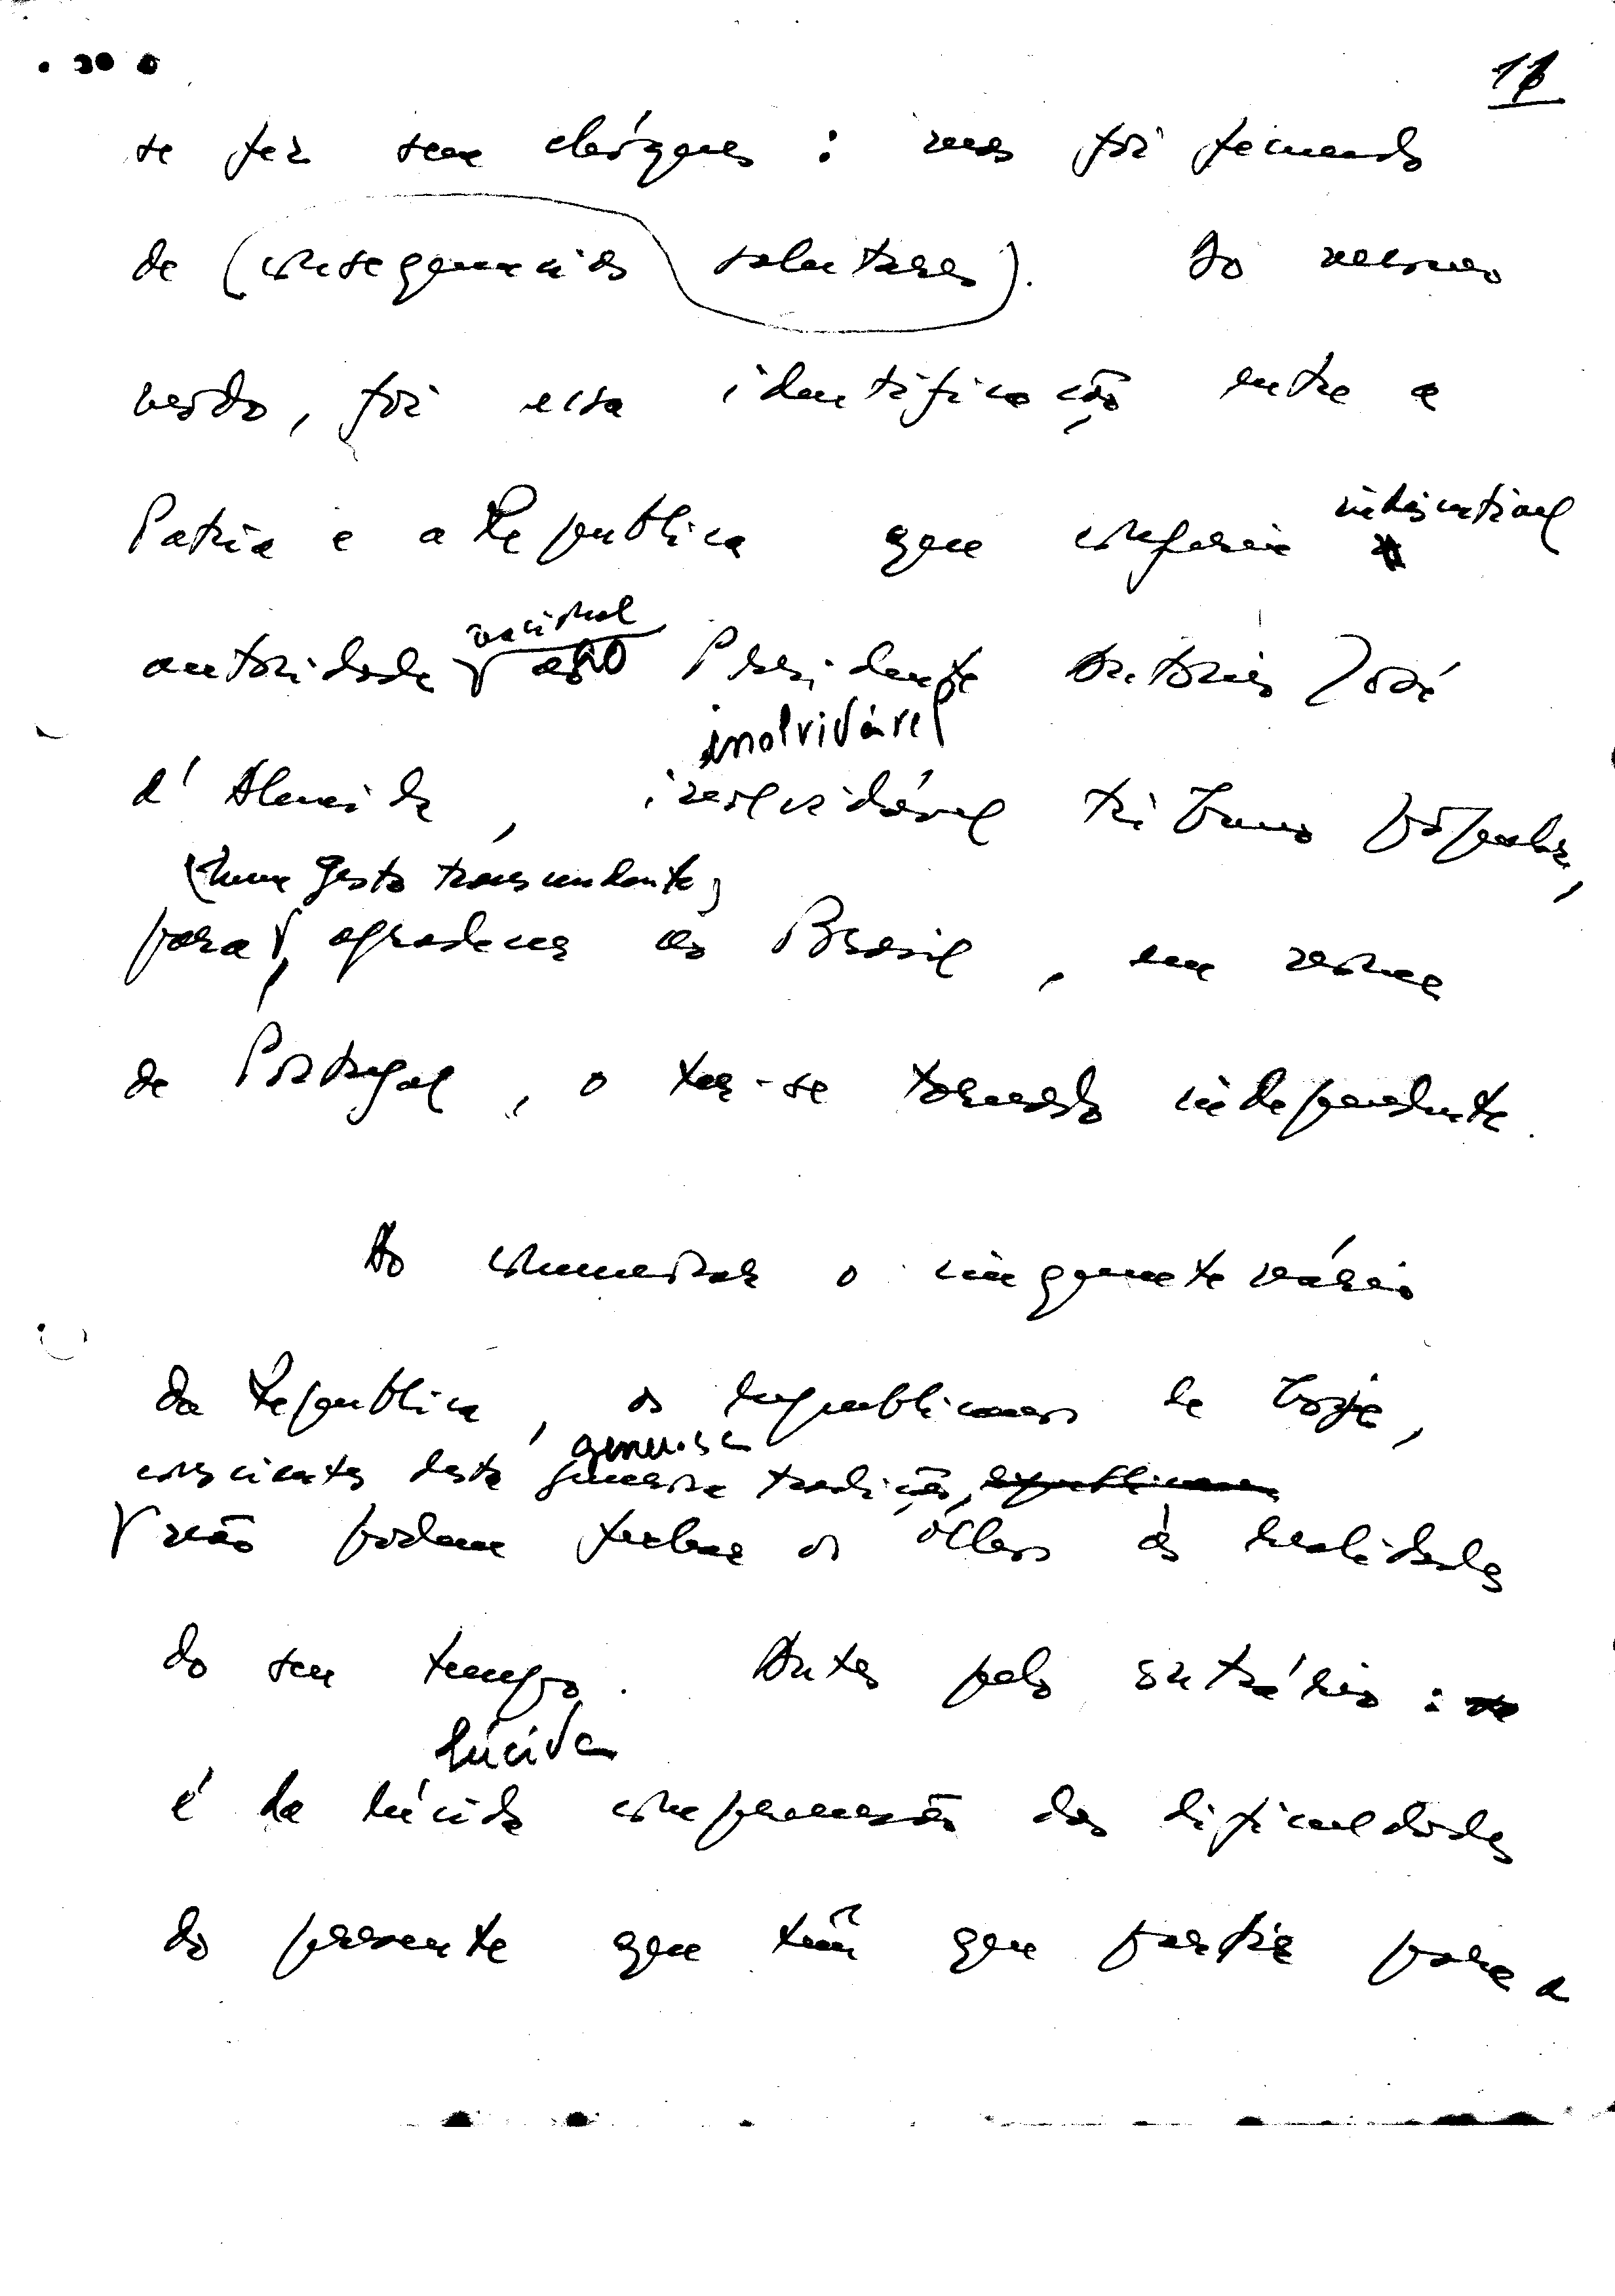 se fez sem choques : mas foi fecundo
de (consequencias salutares). Do mesmo
modo, foi essa identificação entre a
Patria e a Republica que conferia indiscutivel
autoridade nacional ao Presidente Antonio José
d'Almeida, inolvidável
inolvidável tribuno popular,
(num gesto transcendente)
para agradecer ao Brasil, em nome
de Portugal, o ter-se tornado independente.
Ao comemorar o cinquentenário
da Republica, os republicanos de hoje,
generosa
conscientes desta generosa tradição, republicana
não podem fechar os olhos ás realidades
do seu tempo. Antes pelo contrário :
lúcida
é da lúcida compreensão das dificuldades
do presente que têm que partir para a